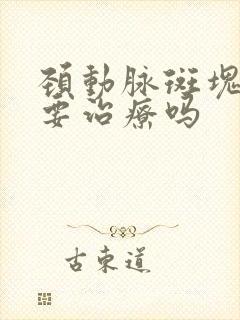 颈動脉斑塊
要治療吗
古東道